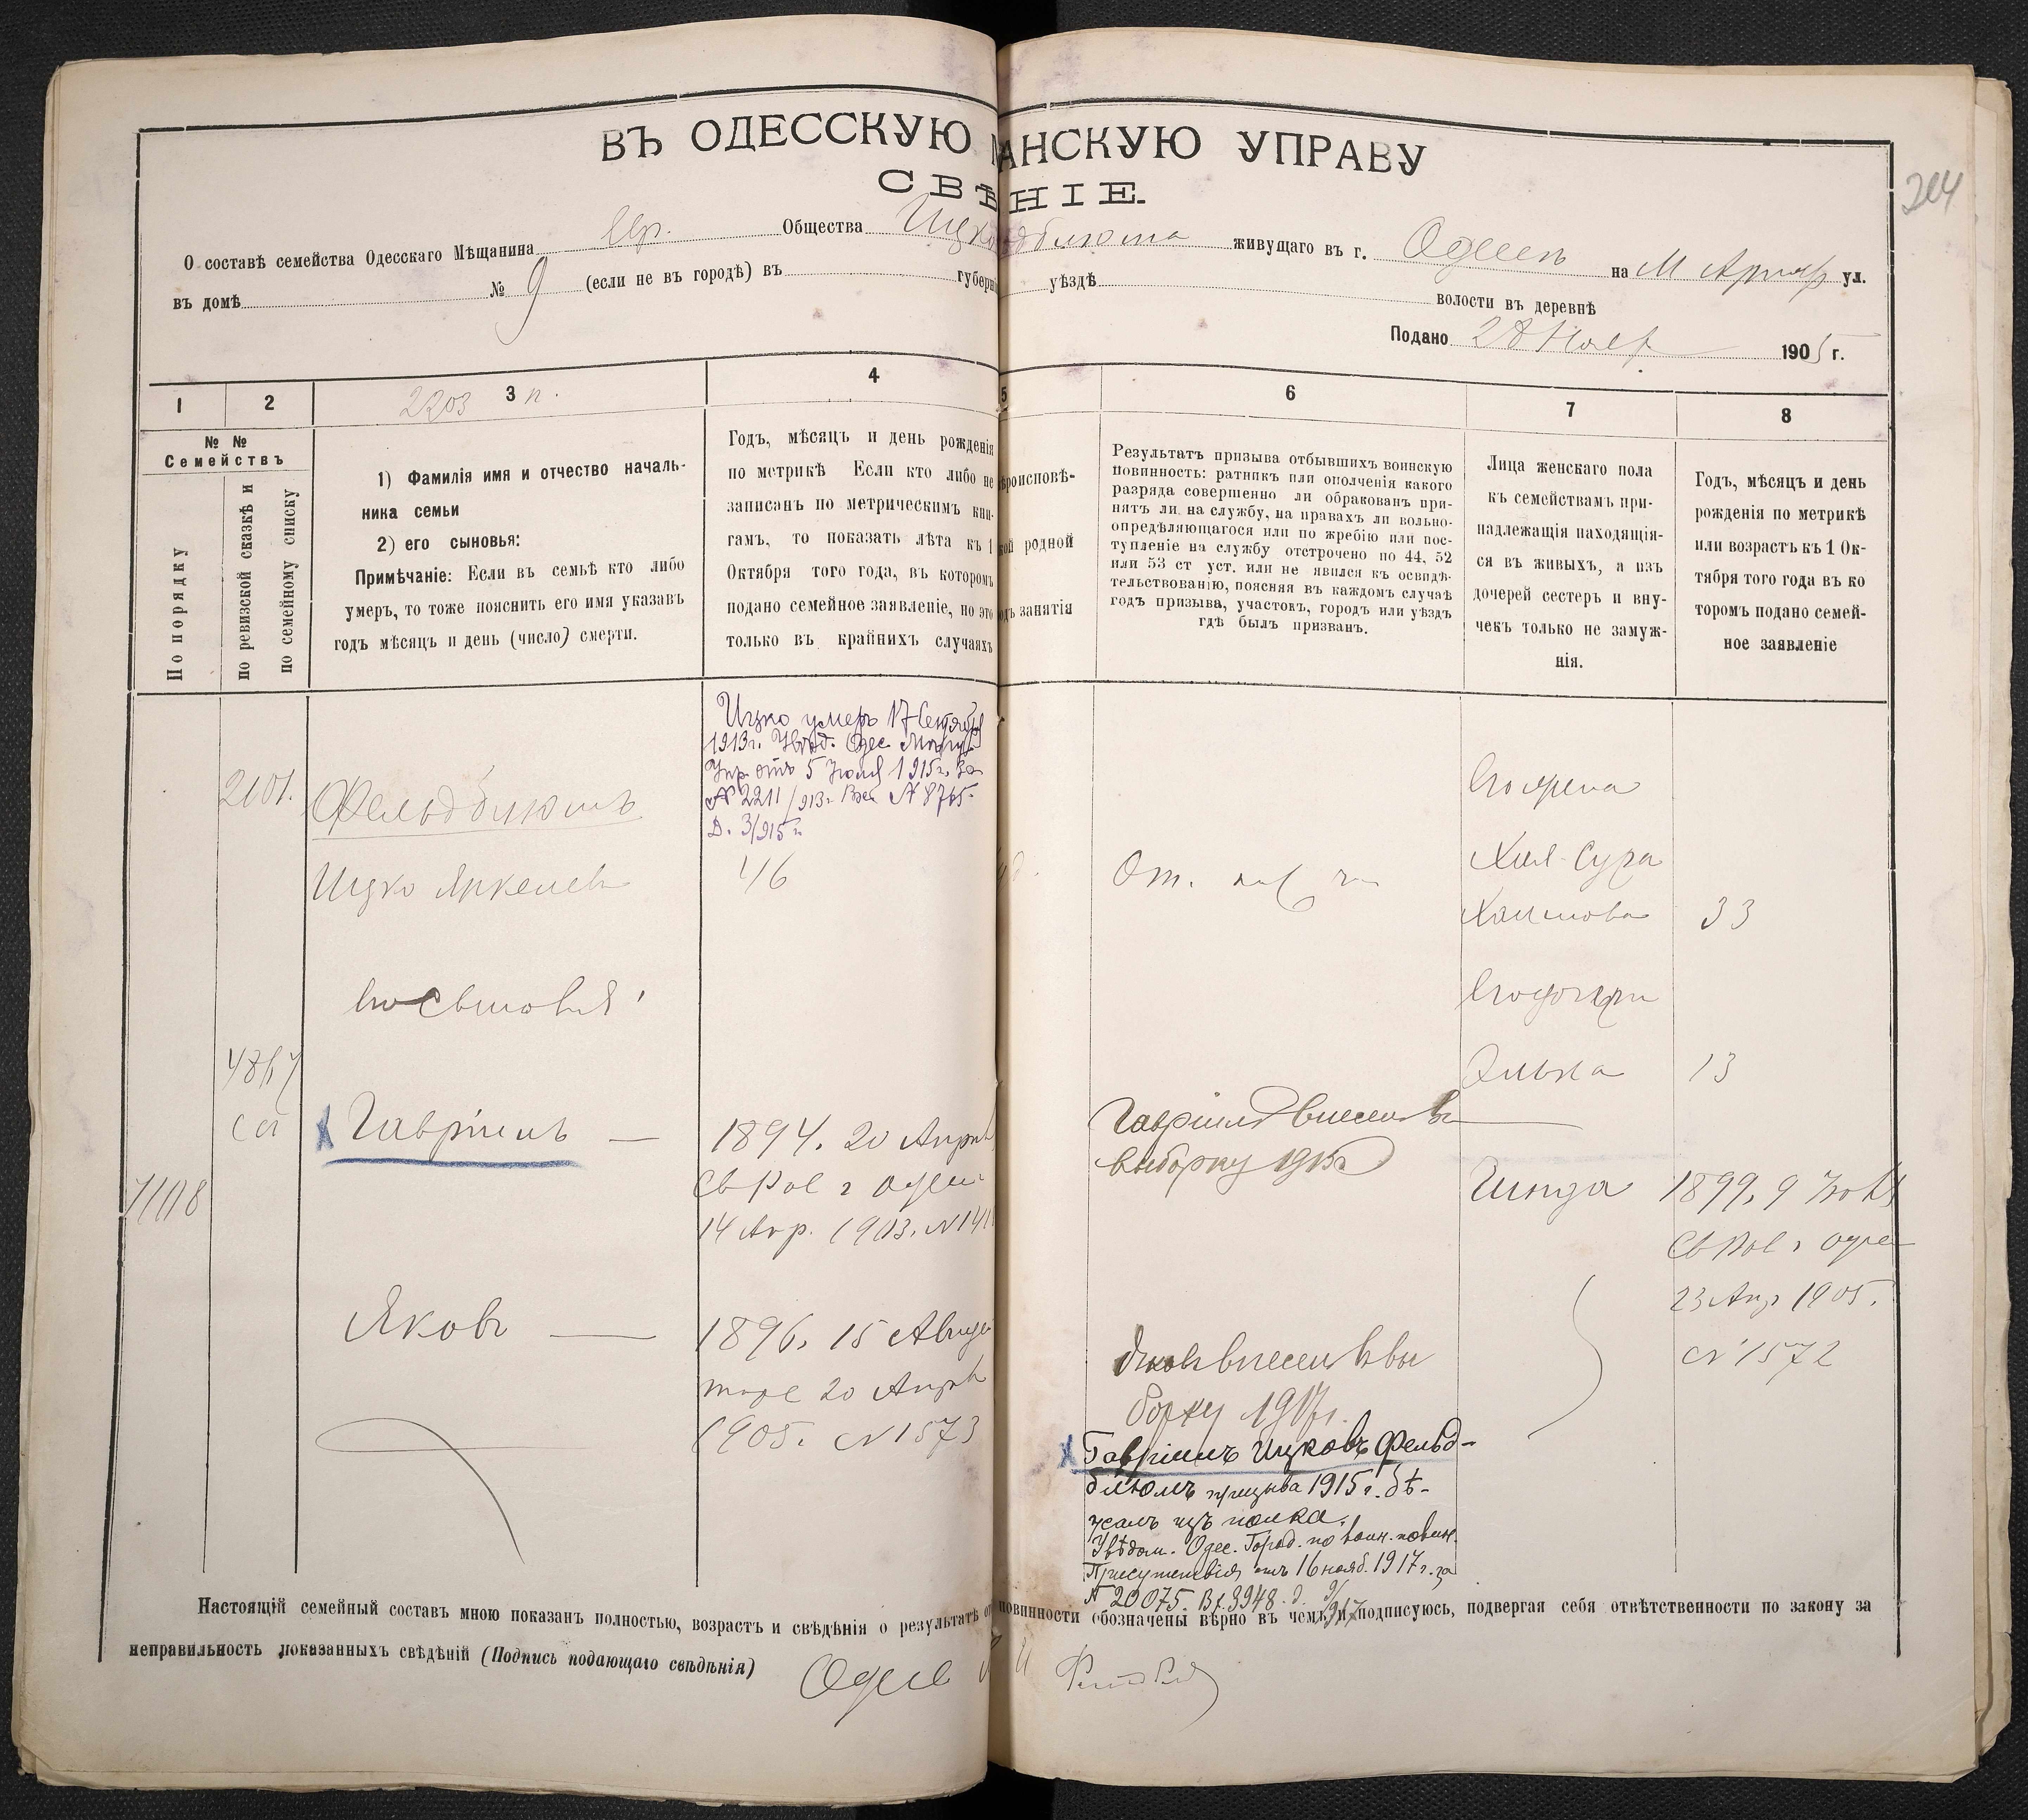 ВЪ ОДЕССКУЮ М АНСКУЮ УПРАВУ
СВѢ НІЕ.
О составѣ семейства Одесскаго Мѣщанина Евр. Общества Ицк дблюма живущаго въ г. Одессѣ на М Арнаут ул.
въ домѣ № 9 (если не въ городѣ) въ губерні уѣздѣ волости въ деревнѣ
Подано 28 Нояб 1905 г.
204
1 2 3 4 5 6 7 8
2203 п.
№ №
Семействъ
По порядку
по ревизской сказкѣ и
по семейному списку
1) Фамилія имя и отчество началь-
ника семьи
2) его сыновья:
Примѣчаніе: Если въ семьѣ кто либо
умеръ, то тоже пояснить его имя указавъ
годъ мѣсяцъ и день (число) смерти.
Годъ, мѣсяцъ и день рожденія
по метрикѣ Если кто либо не
записанъ по метрическимъ кни-
гамъ, то показать лѣта къ 1
Октября того года, въ которомъ
подано семейное заявленіе, но это
только въ крайнихъ случаяхъ
ѣроисповѣ-
кой родной
одъ занятія
Результатъ призыва отбывшихъ воинскую
повинность: ратникъ или ополченія какого
разряда совершенно ли обракованъ при-
нятъ ли на службу, на правахъ ли вольно-
опредѣляющагося или по жребію или пос-
тупленіе на службу отстрочено по 44, 52
или 53 ст уст. или не явился къ освидѣ-
тельствованію, поясняя въ каждомъ случаѣ
годъ призыва, участокъ, городъ или уѣздъ
гдѣ былъ призванъ.
Лица женскаго пола
къ семействамъ при-
надлежащія находящія-
ся въ живыхъ, а изъ
дочерей сестеръ и вну-
чекъ только не замуж-
нія.
Годъ, мѣсяцъ и день
рожденія по метрикѣ
или возрастъ къ 1 Ок-
тября того года въ ко
торомъ подано семей-
ное заявленіе
Ицко умеръ 17 Сентября
1913 г. Увѣд. Одес. Мѣщ.
Упр. отъ 5 Іюля 1915 г. за
№ 2211/913 г. Вх. № 8765.
Д. 3/915 г.
2101.
Фельдблюмъ
Ицко Янкелев
46
От.
Его жена
Хая-Сура
Хаимова
33
Его сыновья:
Его дочери
Элька
13
4867
Гавріилъ —
1894. 20 Апрѣл
Св Рав г Одес
14 Апр. 1903. №
Гавріилъ внесенъ въ
выборку 1915г
Гинда
1899, 9 Іюля
Св Рав г Одес
23 Апр 1905.
№ 1572
Яковъ —
1896. 15 Авгус
тоже 20 Апрѣл
1905. № 1573
внесенъ въ вы
борку 1917 г.
Гавріилъ Ицковъ Фельд-
блюмъ призыва 1915 г. бѣ-
жалъ изъ полка.
Увѣдом. Одес. Город. по воин. повин.
Присутствія отъ 16 нояб. 1917 г. за
№ 20075. Вх. 8948. д. 9/917
Настоящій семейный составъ мною показанъ полностью, возрастъ и свѣдѣнія о результатѣ от повинности обозначены вѣрно въ чемъ и подписуюсь, подвергая себя отвѣтственности по закону за
неправильность показанныхъ свѣдѣній (Подпись подающаго свѣдѣнія)